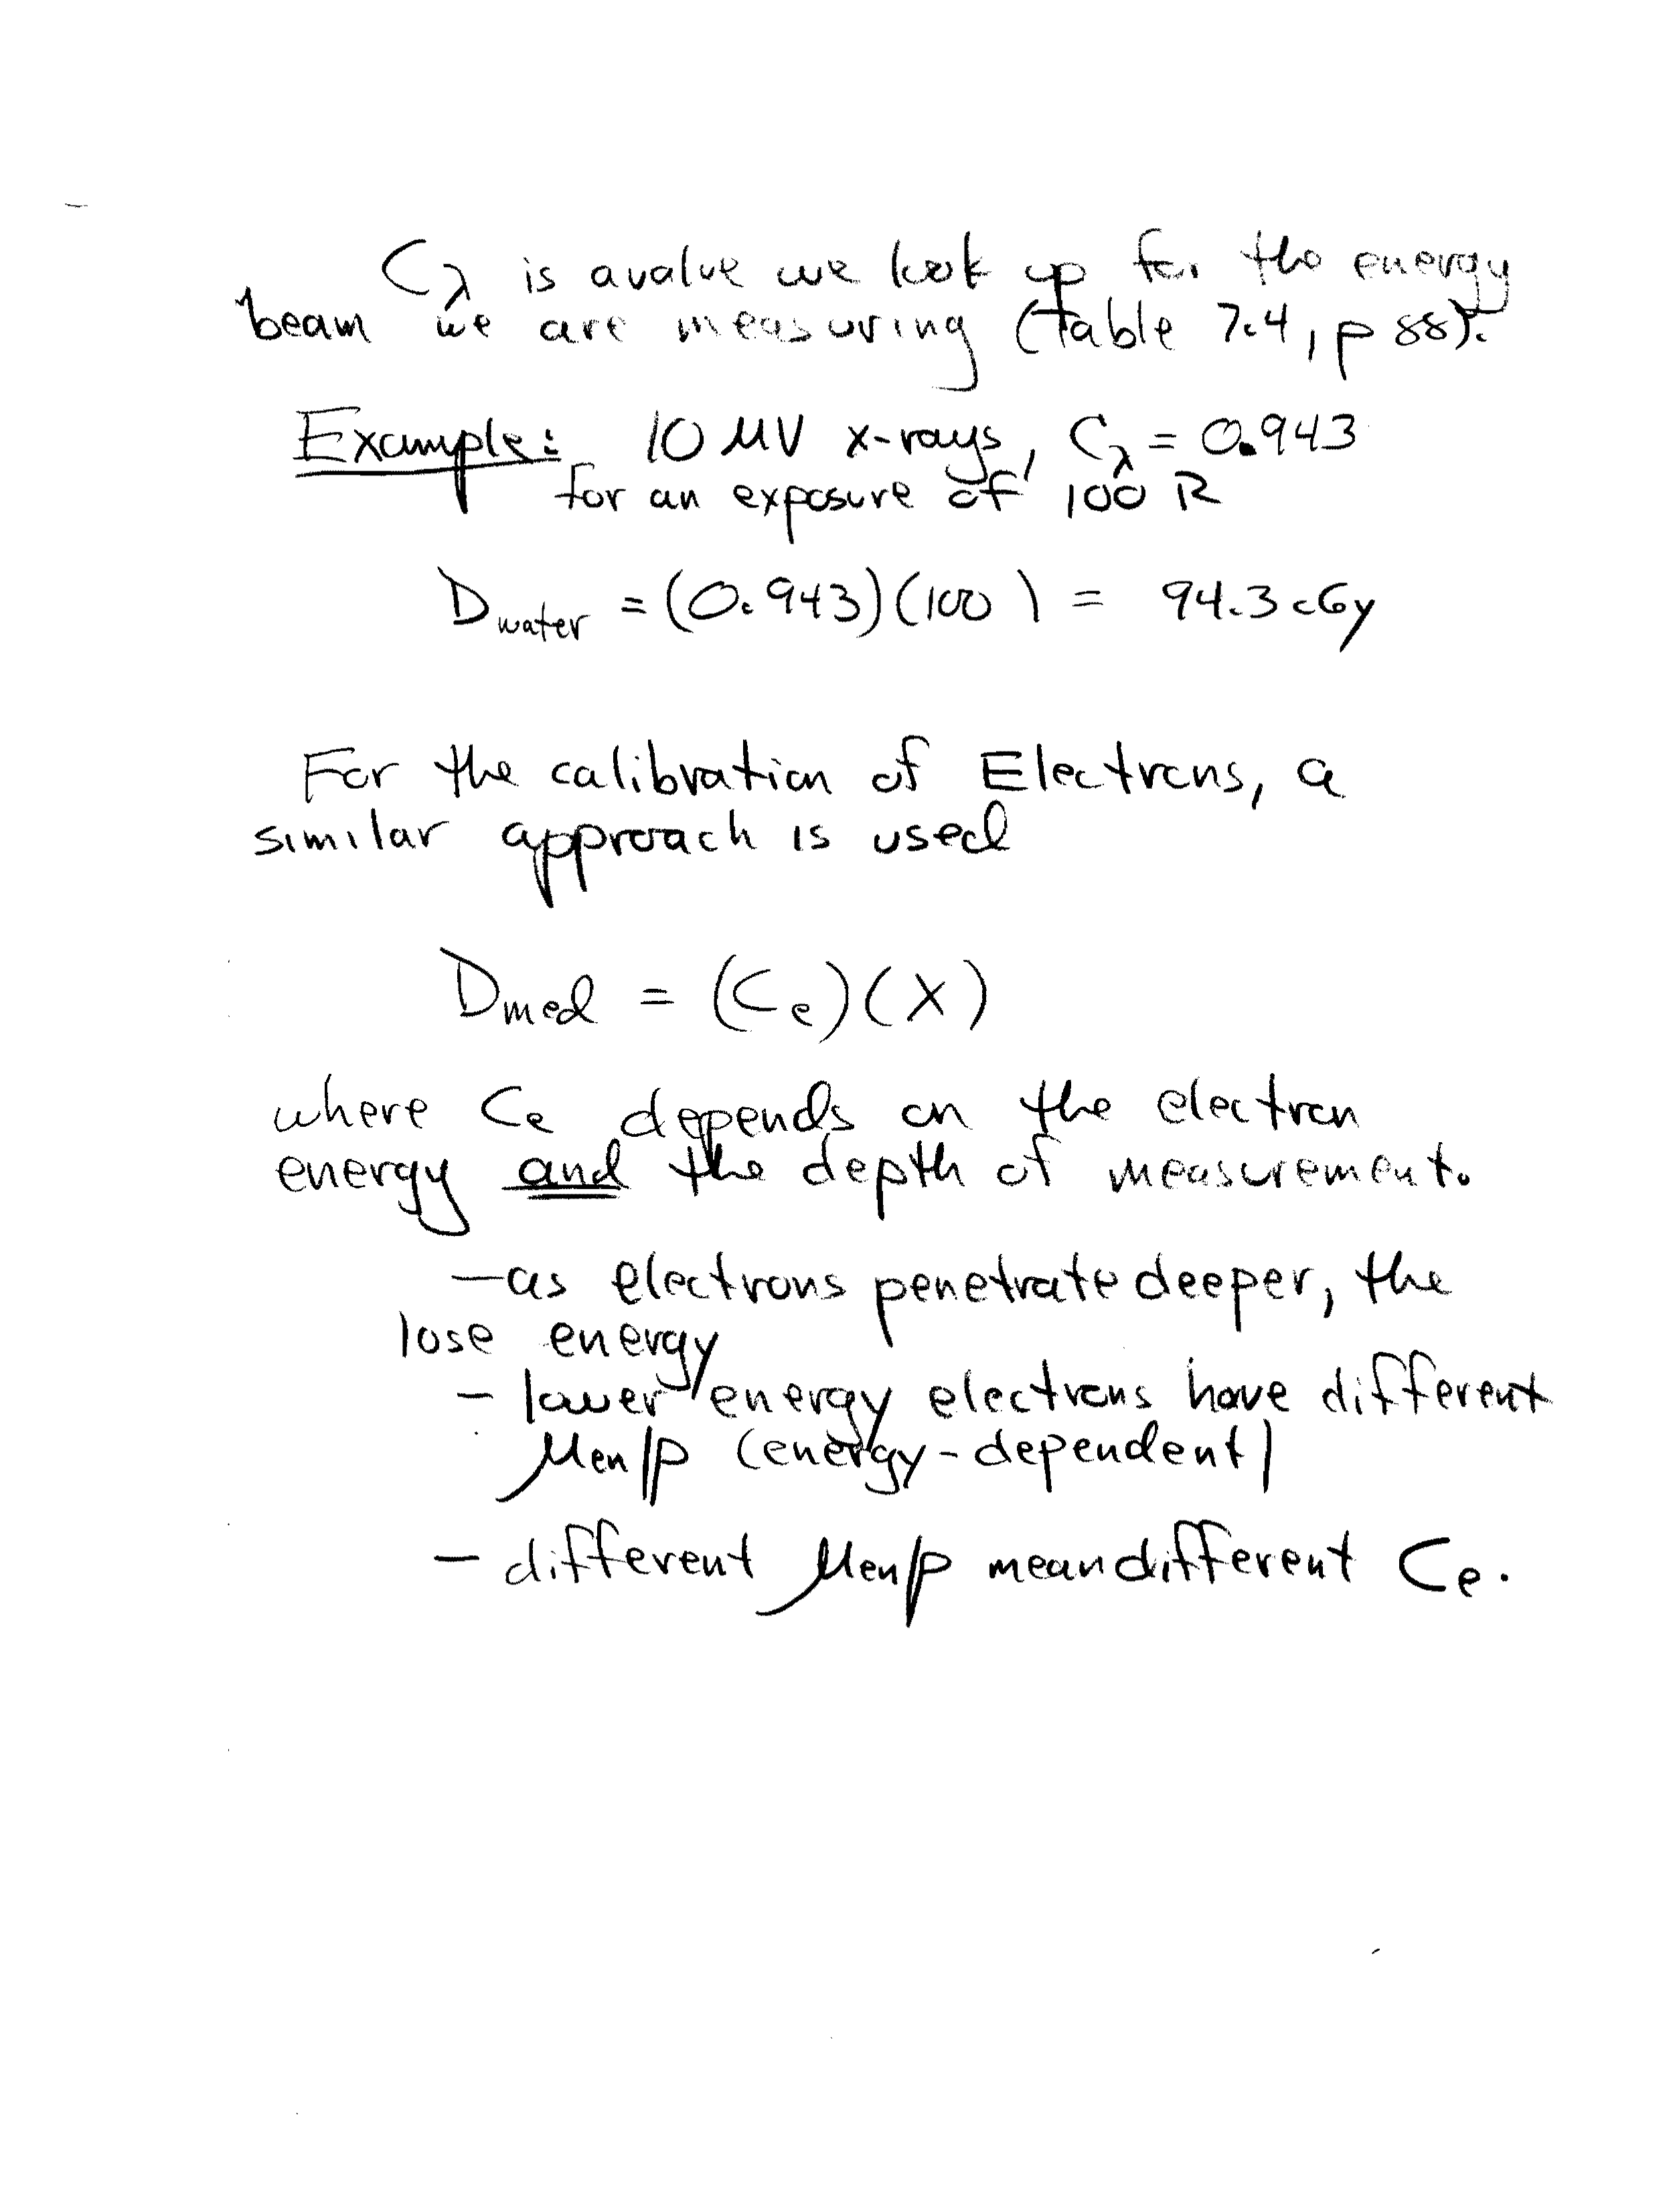 Cλ is a value we look up for the energy
beam we are measuring (Table 7.4, p 88).
Example: 10 MV x-rays, Cλ = 0.943
for an exposure of 100 R
Dwater = (0.943)(100) = 94.3 cGy
For the calibration of Electrons, a
similar approach is used
Dmed = (Ce)(X)
where Ce depends on the electron
energy and the depth of measurement.
—as electrons penetrate deeper, the
lose energy
- lower energy electrons have different
μen/ρ (energy-dependent)
- different μen/ρ mean different Ce.